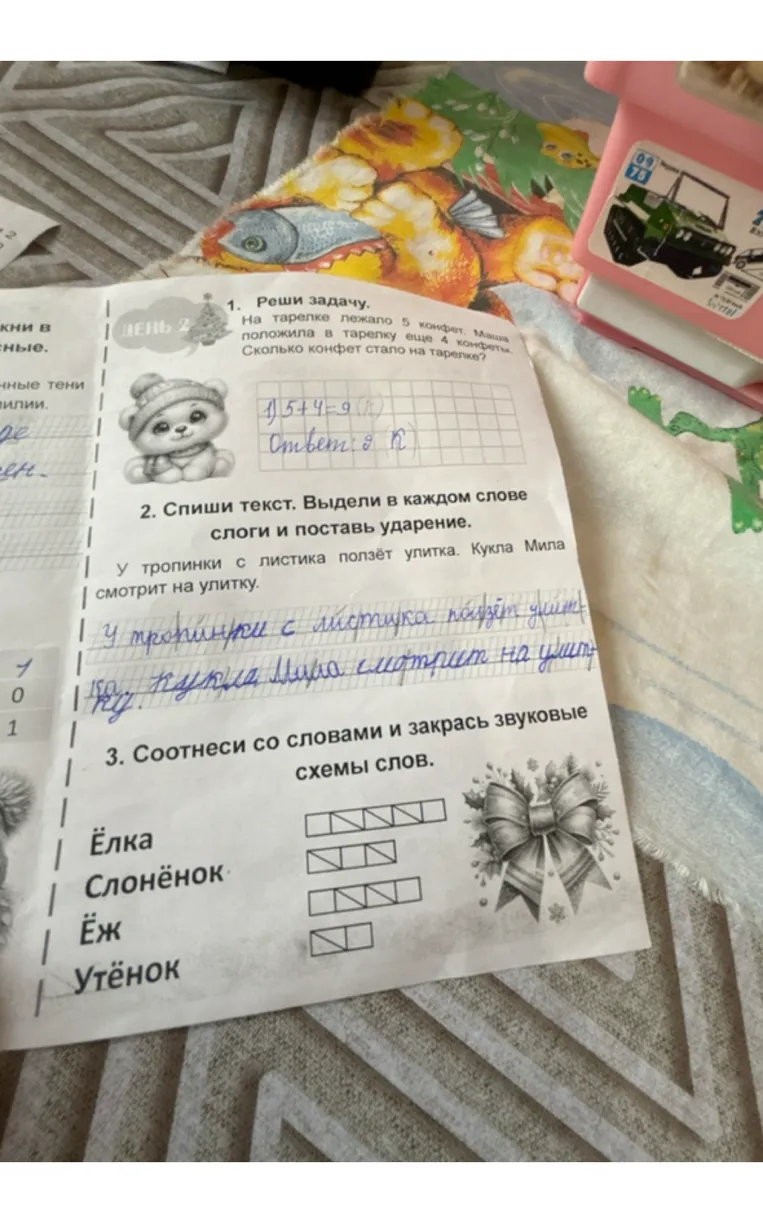 кни в
ные.
нные тени
илии.
де
ен.
1
0
1
ДЕНЬ 2
1. Реши задачу.
На тарелке лежало 5 конфет. Маша
положила в тарелку еще 4 конфеты.
Сколько конфет стало на тарелке?
1) 5+4=9 (К)
Ответ: 9 (К)
2. Спиши текст. Выдели в каждом слове
слоги и поставь ударение.
У тропинки с листика ползёт улитка. Кукла Мила
смотрит на улитку.
У тропин/ки с листи/ка пол/зёт улит-
ка. Кук/ла Ми/ла смот/рит на улит-
ку.
3. Соотнеси со словами и закрась звуковые
схемы слов.
Ёлка
Слонёнок
Ёж
Утёнок
09
78